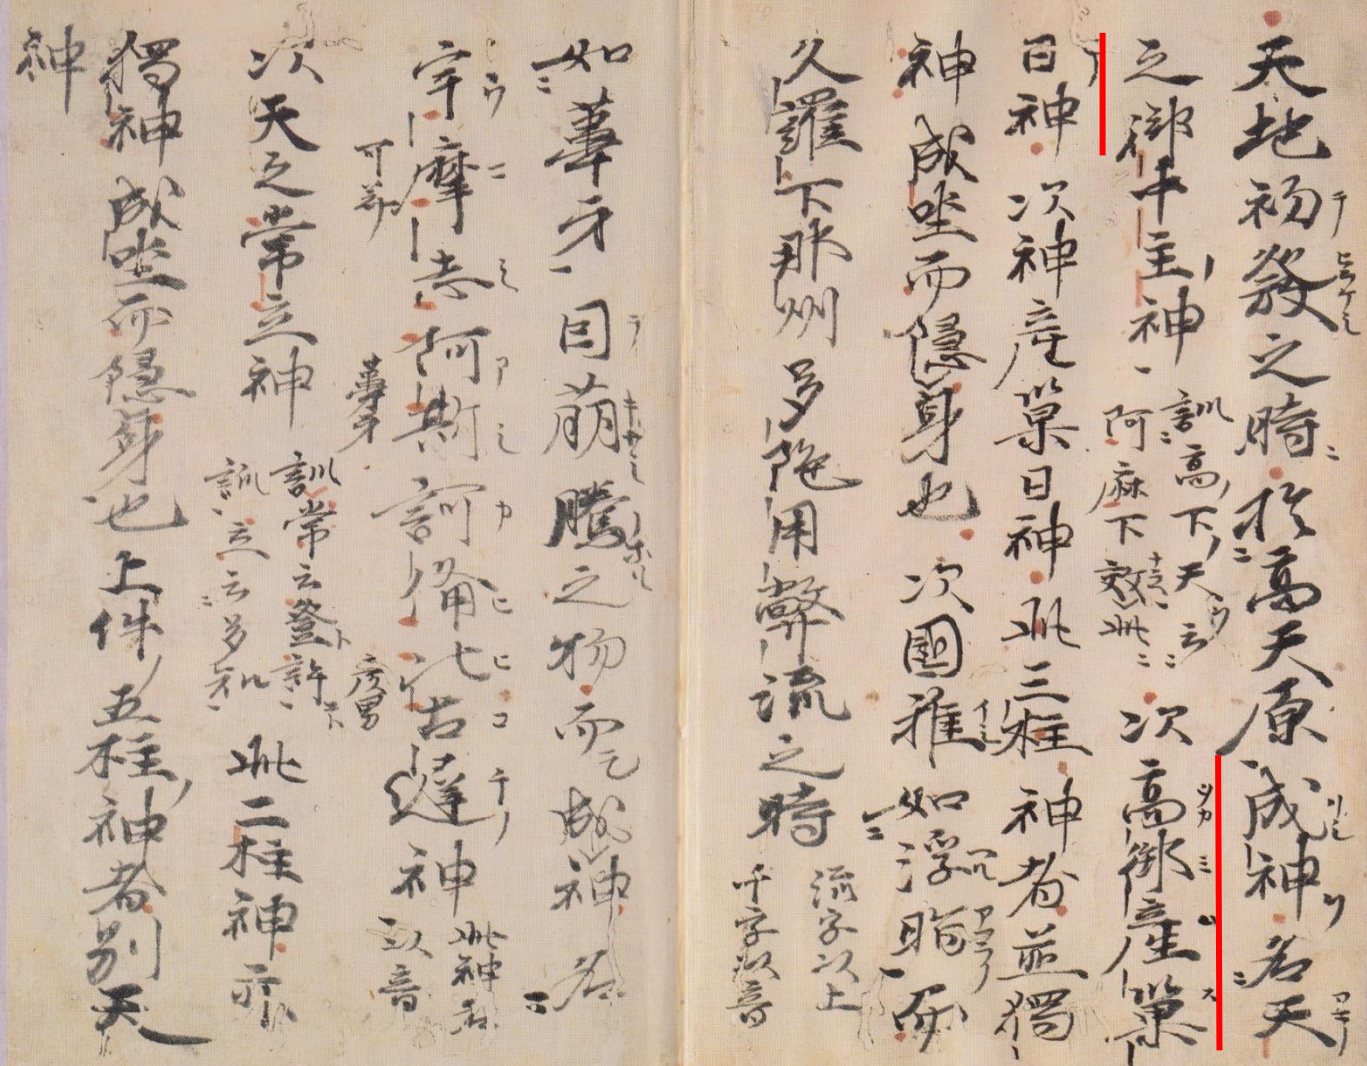 天地初發之時於高天原成神名天
之御中主神訓高下天云阿麻下效此次高御產巢
日神次神產巢日神此三柱神者並獨
神成坐而隱身也次國稚如浮脂而
久羅下那州多陀用弊流之時流字以上十字以音
如葦牙因萌騰之物而成神名
宇摩志阿斯訶備比古遲神此神名以音
次天之常立神訓常云登許訓立云多知此二柱神亦
獨神成坐而隱身也上件五柱神者別天
神